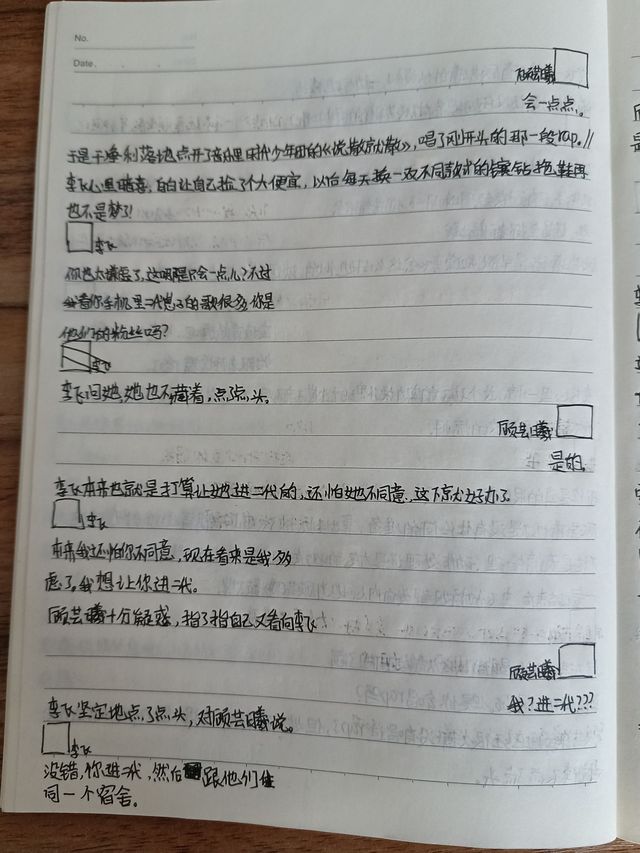 No.
Date.
顾芸曦
会一点点。
于是干净利落地点开了音乐里时代少年团的《说散就散》，唱了刚开头的那一段rap。//
李飞心里暗喜，自己让自己捡了个大便宜，以后每天换一双不同款式的镶钻拖鞋再
也不是梦了！
李飞
你也太谦虚了，这明明是只会一点儿？不过
我看你手机里二代他们的歌很多，你是
他们的粉丝吗？
李飞
李飞问她，她也不藏着，点了点头。
顾芸曦
是的。
李飞本来也就是打算让她进二代的，还怕她不同意，这下就好办了。
李飞
本来我还怕你不同意，现在看来是我多
虑了。我想让你进二代。
顾芸曦十分疑惑，指了指自己又看向李飞
顾芸曦
我？进二代？？？
李飞坚定地点了点头，对顾芸曦说。
李飞
没错，你进二代，然后跟他们住
同一个宿舍。